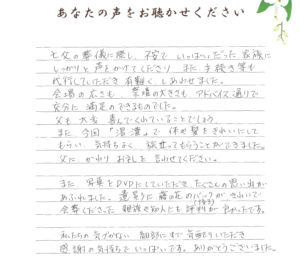 あなたの声をお聴かせください
亡父の葬儀に際し、不安でいっぱいだった家族に
しっかりと声をかけてくださり また手続き等も
代行していただき 有難く しあわせました。
会場の広さも、祭壇の大きさも アドバイス通りで
充分に 満足のできるものでした。
父も大喜 喜んでくれていることでしょう。
また、今回「湯灌」で 体や髪をきれいにして
もらい、気持ちよく 旅立ってもらうことができました。
父にかわり お礼を 言わせてください。
また、写真をDVDにしていただき たくさんの思い出が
あふれました。遺影うに 藤の花のバックが きれいで
会葬くださった 親族や知人にも 評判が 良かったです。
私たちの 気づかない 細部にまで 気配りいただき
感謝の気持ちで いっぱいです。ありがとうございました。